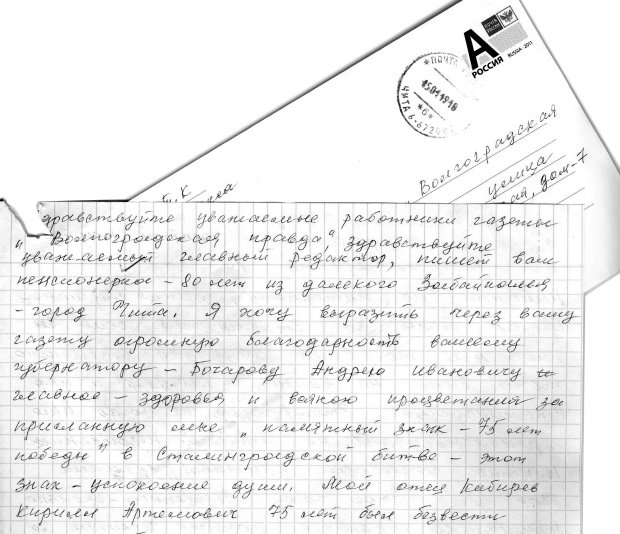 А
ПОЧТА РОССИИ
РОССИЯ
RUSSIA · 2011
ПОЧТА
150119 18
ЧИТА 6-672006
*6*
Волгоградская
улица
дом-7
дравствуйте уважаемые работники газеты
„Волгоградская правда", здравствуйте
уважаемый главный редактор, пишет вам
пенсионерка - 80 лет из далекого Забайкалья
- город Чита. Я хочу выразить через вашу
газету огромную благодарность вашему
губернатору - Бочарову Андрею Ивановичу
главное - здоровья и процветания за
присланную мне „памятный знак - 75 лет
победы" в Сталинградской битве - этот
знак - успокоение души. Мой отец Кабирев
Кирилл Артемович 75 лет был безвести